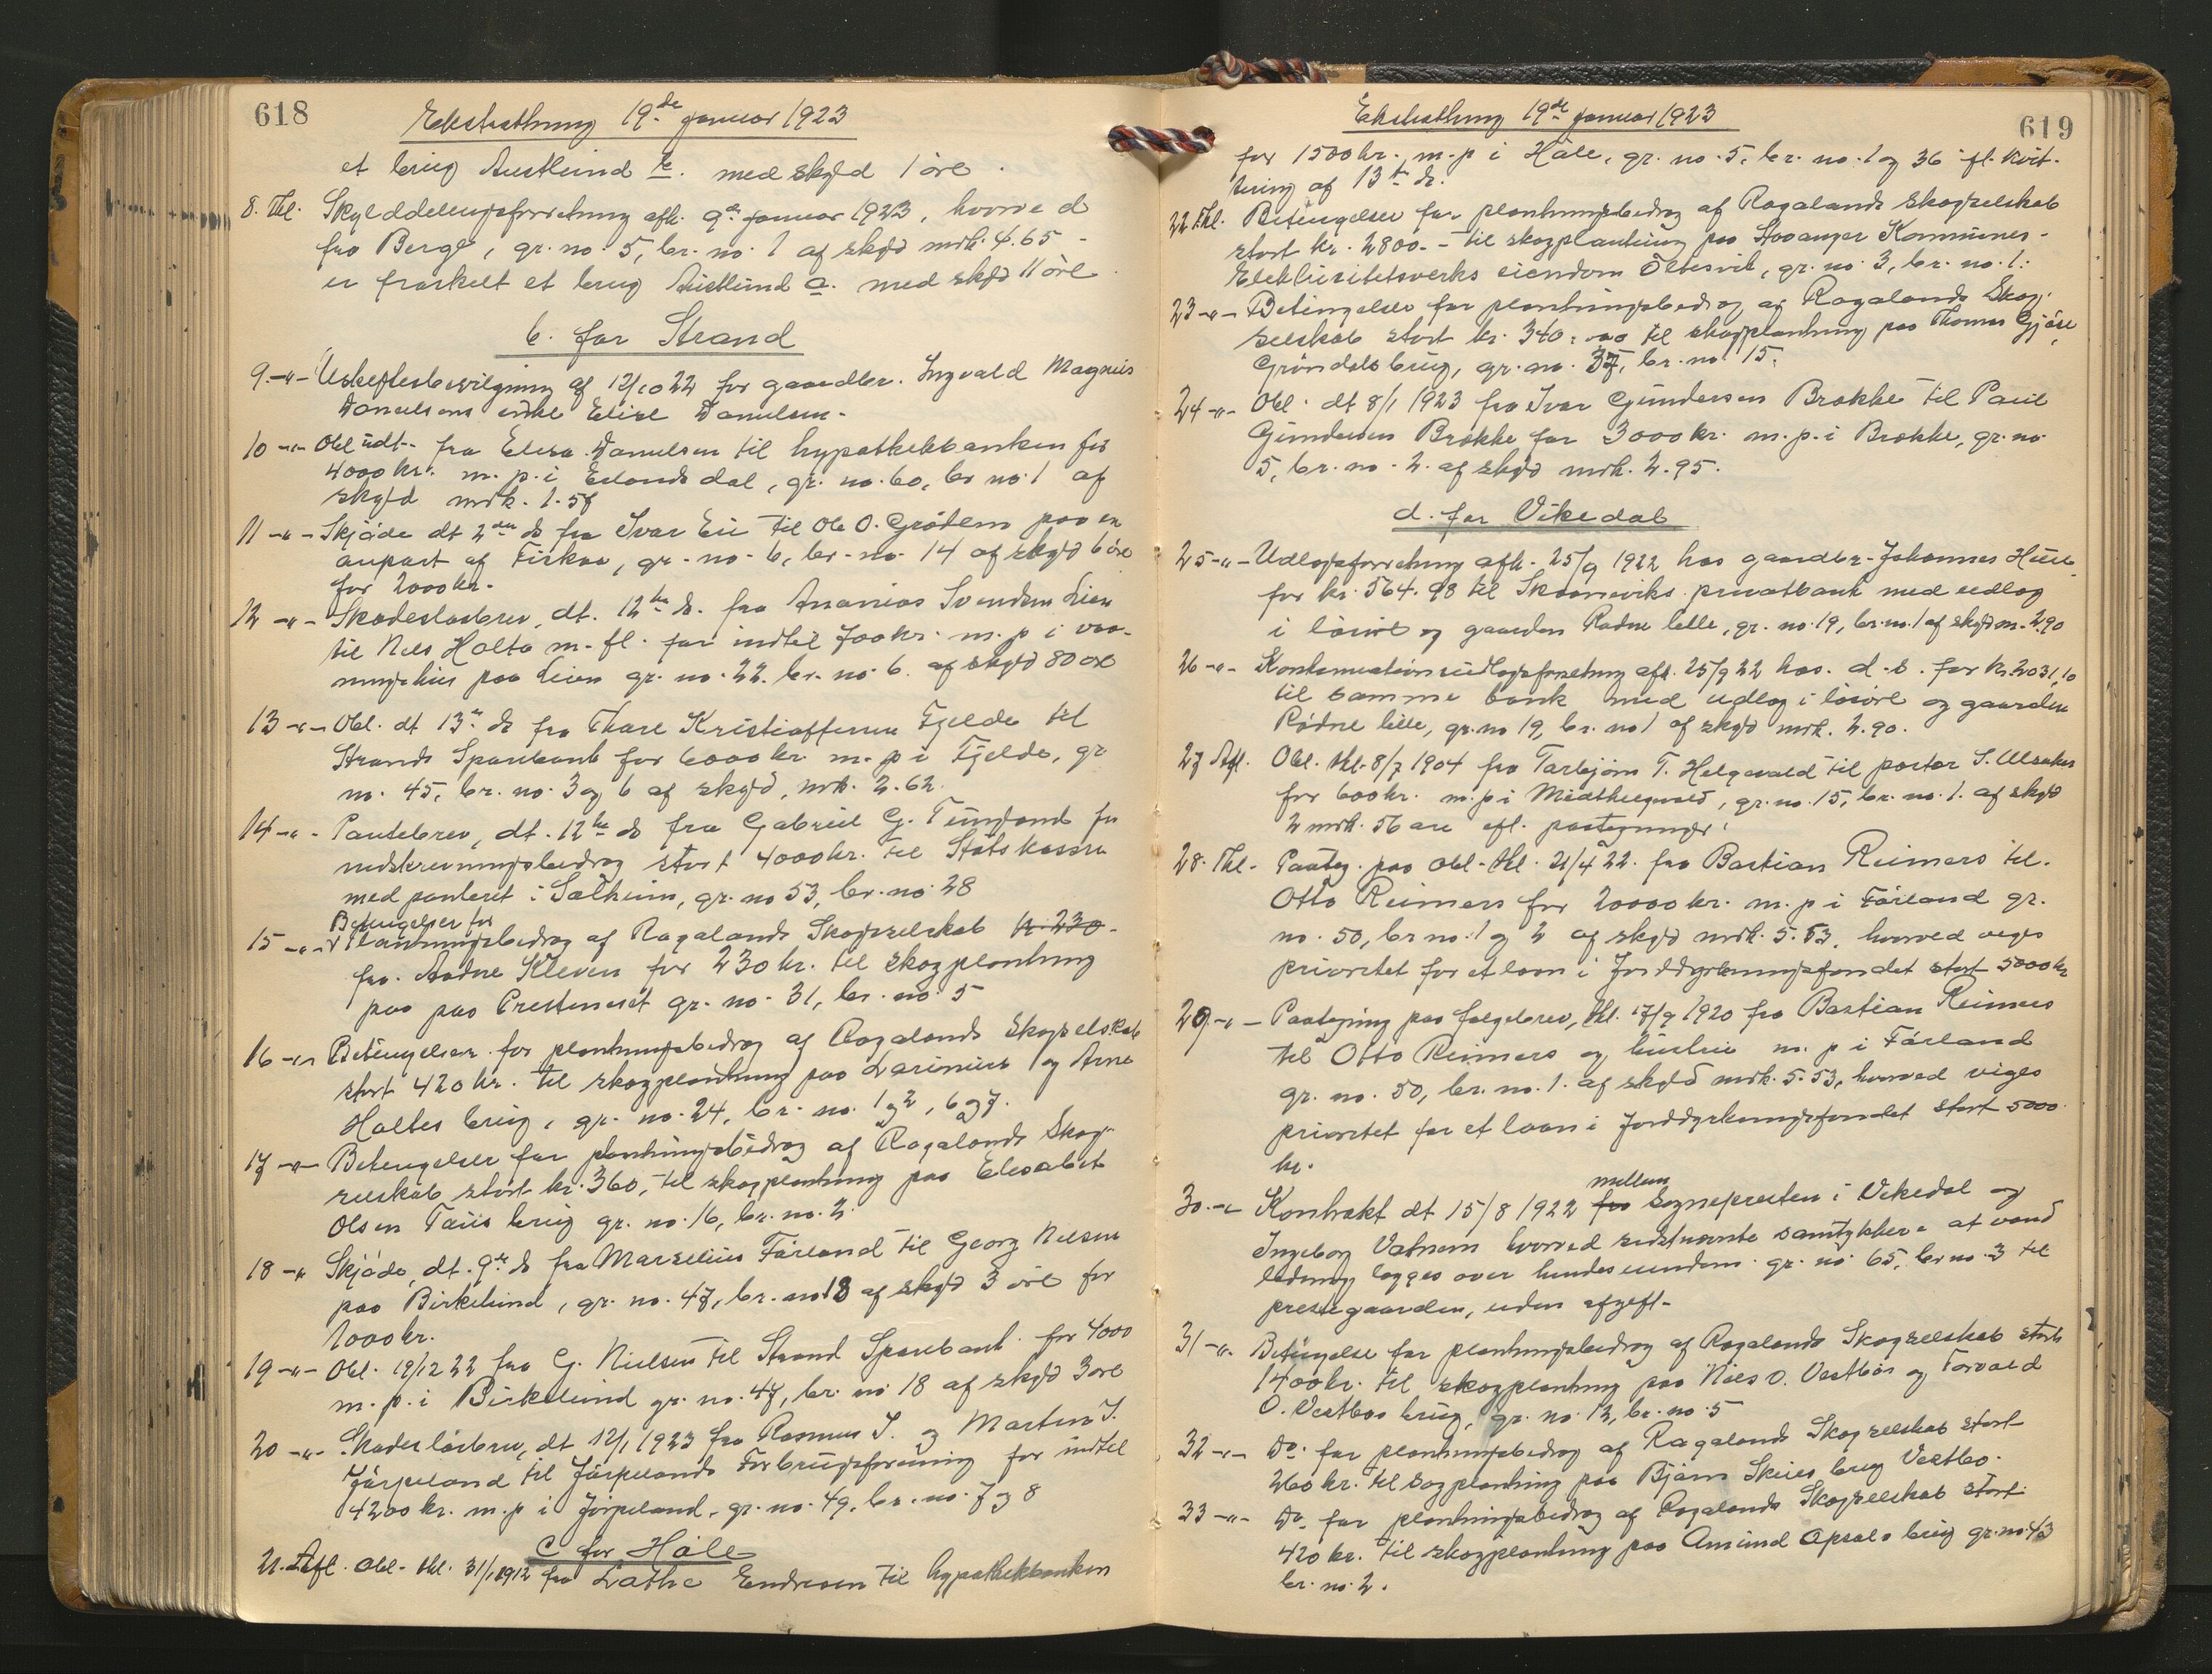 618
Ekstrathing 19de januar 1923
et brug Austlund b. med skyld 1 øre.
8. Thl. Skylddelingsforretning afh. 9de januar 1923, hvorved
fra Berge, gr. no. 5, br. no. 1 af skyld mrk. 4.65 -
er fraskelt et brug Austlund a. med skyld 11 øre.
b. for Strand
9. -"- Uskiftesbevilgning af 12/10 22 for gaardbr. Ingvald Magnus
Danielsens enke Elise Danielsen.
10 -"- Obl. udt. fra Elisa Danielsen til hypothekbanken for
4000 kr. m. p. i Erlandsdal, gr. no. 60, br. no. 1 af
skyld mrk. 1.57
11 -"- Skjøde dt 2den ds fra Ivar Eie til Ole O. Grødem paa en
anpart af Fiskaa, gr. no. 6, br. no. 14 af skyld 6 øre
for 2000 kr.
12 -"- Skadesløsbrev, dt. 12te ds. fra Ananias Svendsen Lien
til Nels Holta m. fl. for indtil 700 kr. m. p. i vaa-
ningshus paa Lien gr. no. 22. br. no. 6. af skyld 80 øre
13 -"- Obl. dt 13de ds fra Thore Kristoffersen Fjelde til
Strands Sparebank for 6000 kr m. p. i Fjelde, gr
no. 45, br. no. 3 og 6 af skyld, mrk. 2.62.
14 -"- Pantebrev, dt. 12te ds fra Gabriel G. Tungland for
nedskrivningsbidrag stort 4000 kr. til Statskassen
med panteret i Solheim, gr. no 53, br. no. 28
Betingelser for
15 -"- Plantningsbidrag af Rogalands Skogselskab kr. 230.
fra Aadne Kleven for 230 kr. til skogplantning
paa paa Prestneset gr. no. 31, br. no. 5
16 -"- Betingelser for plantningsbidrag af Rogalands Skogselskab
stort 420 kr. til skogplantning paa Larsinius og Arne
Holtes brug, gr. no. 24, br. no. 1 og 2, 6 og 7.
17 -"- Betingelser for plantningsbidrag af Rogalands Skog-
selskab stort kr. 360, - til skogplantning paa Elisabet
Olsen Taus brug gr. no. 16, br. no. 2.
18 -"- Skjøde, dt. 9de ds fra Marselius Førland til Georg Nielsen
paa Birkelund, gr. no. 47, br. no 18 af skyld 3 øre for
1000 kr.
19 -"- Obl. 19/12 22 fra G. Nielsen til Strand Sparebank for 4000
m. p. i Birkelund gr. no. 47, br. no 18 af skyld 3 øre
20 -"- Skadesløsbrev, dt 12/1 1923 fra Rasmus J. og Martin J.
Jørpeland til Jørpelands Forbrugsforening for indtil
4200 kr. m. p. i Jørpeland, gr. no. 49, br. no. 7 og 8
c for Høle
21. Afl. Obl. thl. 31/1 1912 fra Lathe Endresen til hypothekbanken
619
Ekstrathing 19de januar 1923
for 1500 kr. m. p i Høle, gr. no. 5, br. no. 1 og 36 fl. kvit-
tering af 13de ds.
22 Thl. Betingelser for plantningsbidrag af Rogalands Skogselskab
stort kr. 2800. - til skogplantning paa Stavanger Kommunes
Elektrisitetsverks eiendom Oltesvik, gr. no. 3, br. no. 1:
23 -"- Betingelser for plantningsbidrag af Rogalands Skog-
selskab stort kr. 340.00 til skogplantning paa Thomas Gjøse,
Grøndals brug, gr. no. 37, br. no. 15.
24 -"- Obl. dt 8/1 1923 fra Ivar Gundersen Brokke til Paul
Gundersen Brokke for 3000 kr. m. p. i Brokke, gr. no.
5, br. no. 2. af skyld mrk. 2.95.
d. for Vikedal
25 -"- Udlægsforretning afh. 25/9 1922 hos gaardbr. Johannes Hus
for kr. 564.98 til Skaaneviks privatbank med udlæg
i løsøre og gaarden Rødne lille, gr. no. 19, br. no. 1 af skyld m. 2.90
26 -"- Kontinuationsudlægsforretning afh. 25/9 22 hos. d. s. for kr. 2031,10
til samme bank med udlæg i løsøre og gaarden
Rødne lille, gr. no 19, br. no 1 af skyld mrk. 2.90.
27 Afl. Obl. thl. 8/7 1904 fra Torbjørn T. Helgevold til pastor S. Ulsaker
for 600 kr. m. p i Midthelgevold, gr. no. 15, br. no. 1. af skyld
2 mrk. 56 øre efl. paategninger.
28. Thl. Paateg. paa obl. thl. 21/4 22. fra Bastian Reimers til
Otto Reimers for 20000 kr. m. p i Førland gr.
no. 50, br no. 1 og 2 af skyld mrk. 5.53. hvorved viges
prioritet for et laan i Jorddyrkningsfondet stort 5000 kr
29 -"- Paategning paa følgebrev, thl. 17/9 1920 fra Bastian Reimers
til Otto Reimers og hustru m. p i Førland
gr. no. 50, br. no. 1. af skyld mrk. 5.53, hvorved viges
prioritet for et laan i Jorddyrkningsfondet stort 5000
kr.
mellem
30. -"- Kontrakt dt 15/8 1922 fra Sognepresten i Vikedal og
Ingeborg Vatnem hvorved sidstnævnte samtykker at vand
ledning lægges over hendes eiendom gr. no 65, br no. 3 til
prestegaarden, uden afgift.
31 -"- Betingelse for plantningsbidrag af Rogalands Skogselskab stort
1400 kr. til skogplantning paa Niels O. Vestbøs og Torvald
O. Vestbøs brug, gr. no 12, br. no. 5
32 -"- Do. for plantningsbidrag af Rogalands Skogselskab stort
260 kr. til sogplantning paa Bjørn Skeies brug Vestbø.
33 -"- Do. for plantningsbidrag af Rogalands Skogselskab stort
420 kr. til skogplantning paa Amund Opsals brug gr. no. 43
br. no. 2.